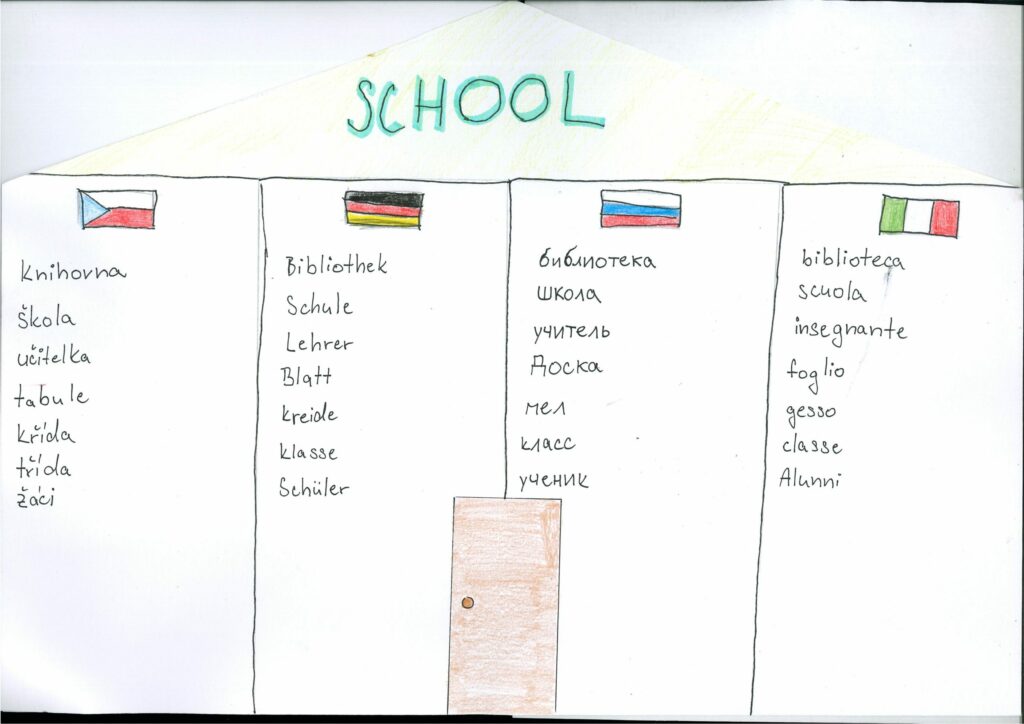 SCHOOL
knihovna
škola
učitelka
tabule
křída
třída
žáci
Bibliothek
Schule
Lehrer
Blatt
kreide
klasse
Schüler
библиотека
школа
учитель
Доска
мел
класс
ученик
biblioteca
scuola
insegnante
foglio
gesso
classe
Alunni